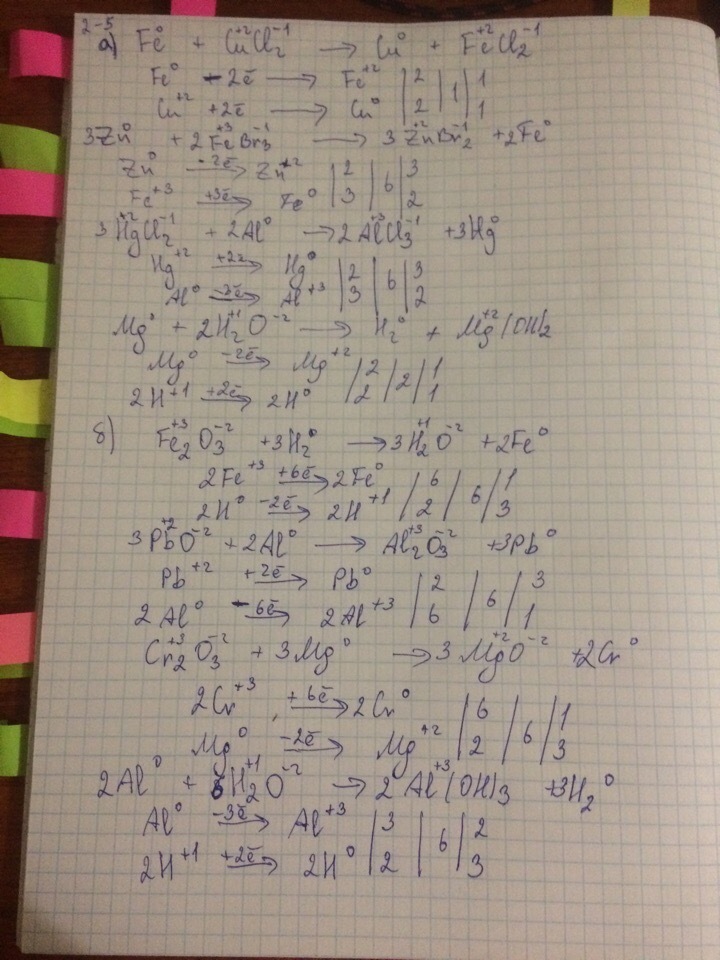 2-5
а) Fe⁰ + Cu⁺²Cl₂⁻¹ → Cu⁰ + Fe⁺²Cl₂⁻¹
Fe⁰ -2ē → Fe⁺² | 2 | 1 | 1
Cu⁺² +2ē → Cu⁰ | 2 | | 1
3Zn⁰ + 2Fe⁺³Br₃⁻¹ → 3Zn⁺²Br₂⁻¹ + 2Fe⁰
Zn⁰ -2ē → Zn⁺² | 2 | 6 | 3
Fe⁺³ +3ē → Fe⁰ | 3 | | 2
3Hg⁺²Cl₂⁻¹ + 2Al⁰ → 2Al⁺³Cl₃⁻¹ + 3Hg⁰
Hg⁺² +2ē → Hg⁰ | 2 | 6 | 3
Al⁰ -3ē → Al⁺³ | 3 | | 2
Mg⁰ + 2H₂⁺¹O⁻² → H₂⁰ + Mg⁺²(OH)₂
Mg⁰ -2ē → Mg⁺² | 2 | 2 | 1
2H⁺¹ +2ē → 2H⁰ | 2 | | 1
б) Fe₂⁺³O₃⁻² + 3H₂⁰ → 3H₂⁺¹O⁻² + 2Fe⁰
2Fe⁺³ +6ē → 2Fe⁰ | 6 | 6 | 1
2H⁰ -2ē → 2H⁺¹ | 2 | | 3
3Pb⁺²O⁻² + 2Al⁰ → Al₂⁺³O₃⁻² + 3Pb⁰
Pb⁺² +2ē → Pb⁰ | 2 | 6 | 3
2Al⁰ -6ē → 2Al⁺³ | 6 | | 1
Cr₂⁺³O₃⁻² + 3Mg⁰ → 3Mg⁺²O⁻² + 2Cr⁰
2Cr⁺³ +6ē → 2Cr⁰ | 6 | 6 | 1
Mg⁰ -2ē → Mg⁺² | 2 | | 3
2Al⁰ + 6H₂⁺¹O⁻² → 2Al⁺³(OH)₃ + 3H₂⁰
Al⁰ -3ē → Al⁺³ | 3 | 6 | 2
2H⁺¹ +2ē → 2H⁰ | 2 | | 3